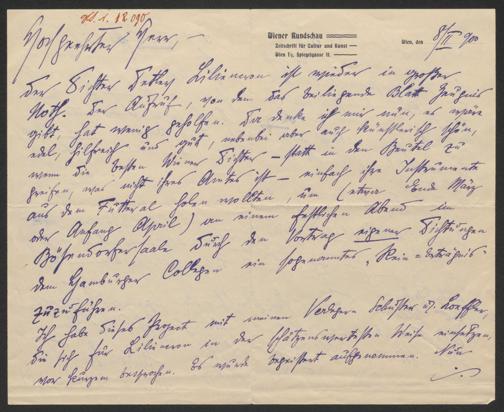 H. I. N. 12090
Wiener Rundschau
Zeitschrift für Cultur und Kunst
Wien I/1, Spiegelgasse 11.
Wien, den 8/II 900
Hochgeehrter Herr, –
der Dichter Detlev Liliencron ist wieder in großer
Noth. Der Aufruf, von dem das beiliegende Blatt Zeugnis
gibt, hat wenig geholfen. Da denke ich mir nun, es wäre
edel, hilfreich und gut, nebenbei aber auch künstlerisch schön,
wenn die besten Wiener Dichter – statt in den Beutel zu
greifen, was nicht ihres Amtes ist – einfach ihre Instrumente
aus dem Futteral holen wollten, um (etwa Ende März
oder Anfang April) an einem festlichen Abend im
Bösendorfersaale durch den Vortrag eigener Dichtungen
dem Hamburger Collegen ein sogenanntes „Rein-Erträgnis“
zuzuführen.
Ich habe dieses Project mit meinen Verlegern Schuster u. Loeffler,
die sich für Liliencron in der schätzenswerthesten Weise einsetzen,
vor kurzem besprochen. Es wurde begeistert aufgenommen. Nun